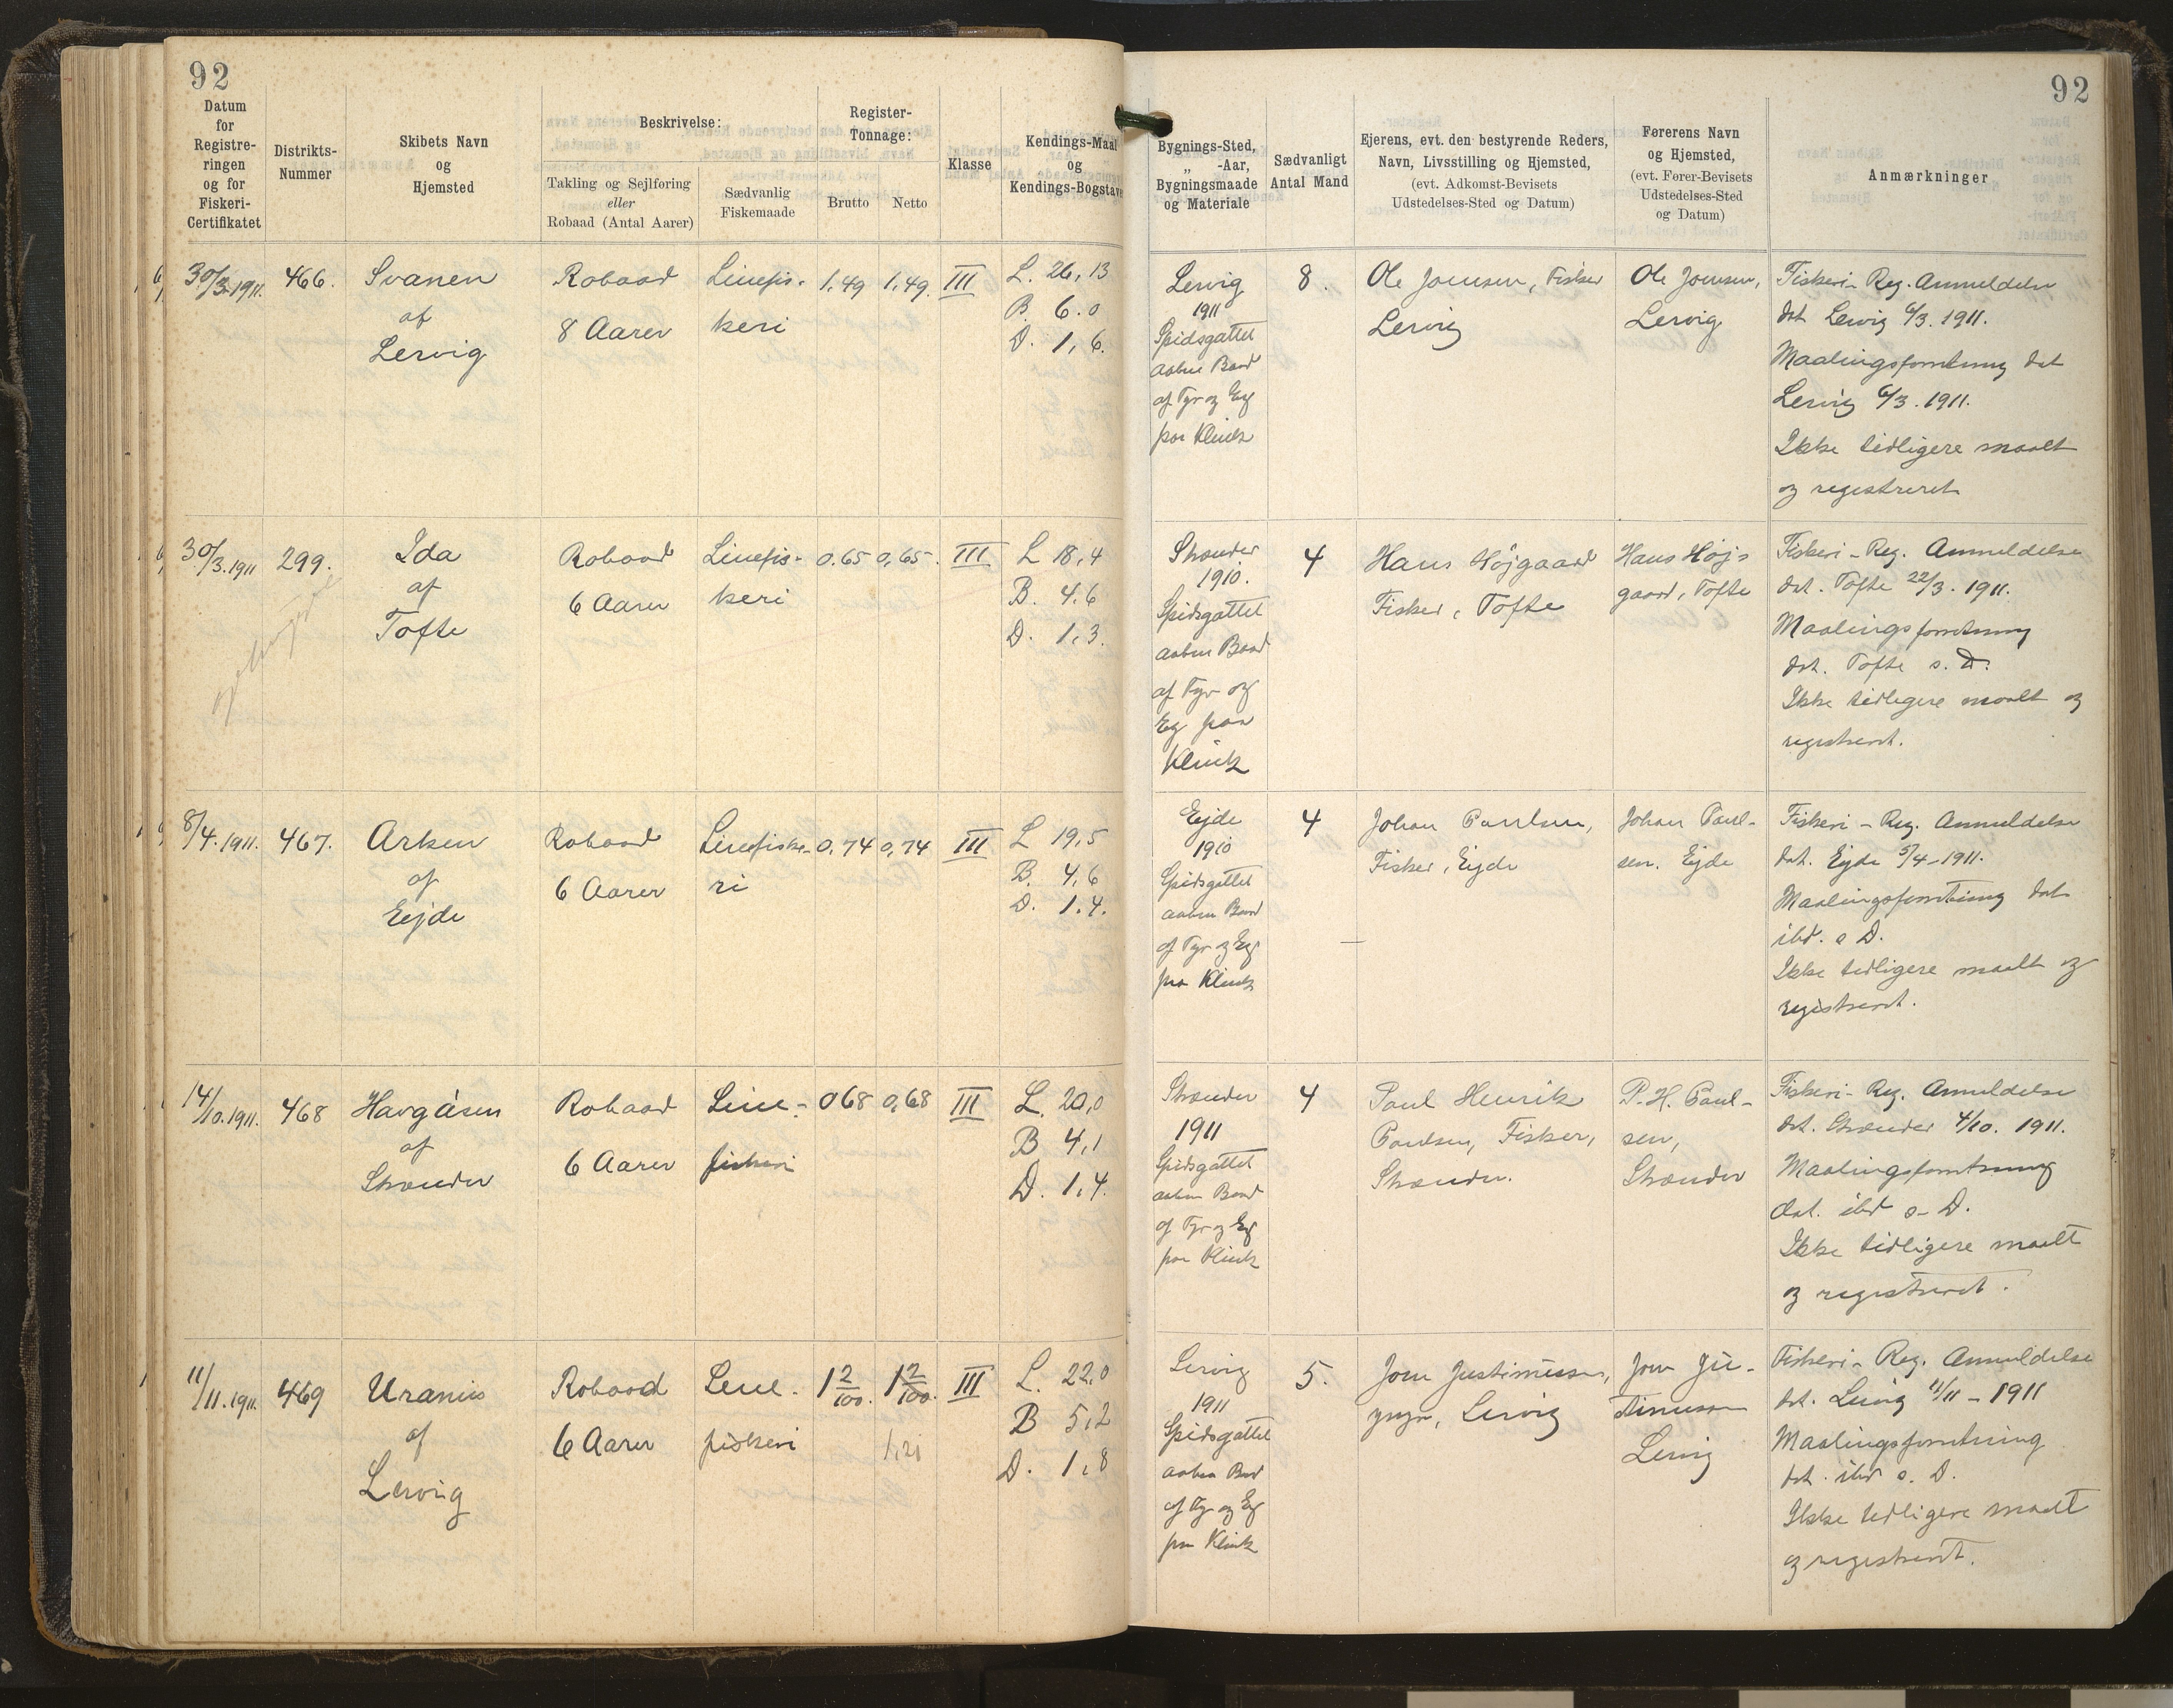 92
92
Datum
for
Registre-
ringen
og for
Fiskeri-
Certifikatet
Distrikts-
Nummer
Skibets Navn
og
Hjemsted
Beskrivelse:
Takling og Sejlføring
eller
Robaad (Antal Aarer)
Sædvanlig
Fiskemaade
Register-
Tonnage:
Brutto
Netto
Klasse
Kendings-Maal
og
Kendings-Bogstave
Bygnings-Sted,
„ -Aar,
Bygningsmaade
og Materiale
Sædvanligt
Antal Mand
Ejerens, evt. den bestyrende Reders,
Navn, Livsstilling og Hjemsted,
(evt. Adkomst-Bevisets
Udstedelses-Sted og Datum)
Førerens Navn
og Hjemsted,
(evt. Fører-Bevisets
Udstedelses-Sted
og Datum)
Anmærkninger
30/3.1911.
466.
Svanen
af
Lervig
Robaad
8 Aarer
Linefis-
keri
1,49
1,49.
III
L. 26,13
B. 6.0
D. 1,6.
Lervig
1911
Spidsgattet
aaben Baad
af Fyr og Eg
paa Klink
8.
Ole Joensen, Fisker
Lervig
Ole Joensen,
Lervig
Fiskeri-Reg. Anmeldelse
dat Lervig 6/3. 1911.
Maalingsforretning dat
Lervig 6/3. 1911.
Ikke tidligere maalt
og registreret
30/3.1911
299.
Ida
af
Tofte
Robaad
6 Aarer
Linefis-
keri
0.65
0,65.
III
L 18,4
B. 4.6
D. 1,3.
Strænder
1910.
Spidsgattet
aaben Baad
af Fyr og
Eg paa
Klink
4
Hans Højgaard
Fisker, Tofte
Hans Højs
gaard, Tofte
Fiskeri-Reg. Anmeldelse
dat. Tofte 22/3. 1911.
Maalingsforretning
dat. Tofte s. D.
Ikke tidligere maalt og
registreret.
8/4.1911.
467.
Arken
af
Ejde
Robaad
6 Aarer
Linefiske-
ri
0,74
0,74
III
L 19,5
B. 4,6
D. 1.4.
Ejde
1910
Spidsgattet
aaben Baad
af Fyr og Eg
paa Klink
4
Johan Paulsen,
Fisker, Ejde
Johan Paul-
sen. Ejde
Fiskeri-Reg. Anmeldelse
dat. Ejde 5/4-1911.
Maalingsforretning dat
ibd. s D.
Ikke tidligere maalt og
registreret.
14/10.1911.
468
Havgásen
af
Strænder
Robaad
6 Aarer
Line-
fiskeri
068
0,68
III
L. 20,0
B 4,1
D. 1,4.
Strænder
1911
Spidsgattet
aaben Baad
af Fyr og Eg
paa Klink
4
Paul Henrik
Paulsen, Fisker,
Strænder.
P. H. Paul-
sen,
Strænder
Fiskeri-Reg. Anmeldelse
dat. Strænder 4/10. 1911.
Maalingsforretning
dat. ibd s- D.
Ikke tidligere maalt
og registreret.
11/11.1911.
469
Uranus
af
Lervig
Robaad
6 Aarer
Line-
fiskeri
1 2/100.
1 2/100.
1,21
III
L. 22,0
B 5,2
D. 1,8
Lervig
1911
Spidsgattet
aaben Baad
af Fyr og Eg
paa Klink
5.
Joen Justinussen,
Lervig
Joen Ju-
stinussen
Lervig
Fiskeri-Reg. Anmeldelse
dat. Lervig 11/11-1911
Maalingsforretning
dat. ibd s. D.
Ikke tidligere maalt
og registreret.